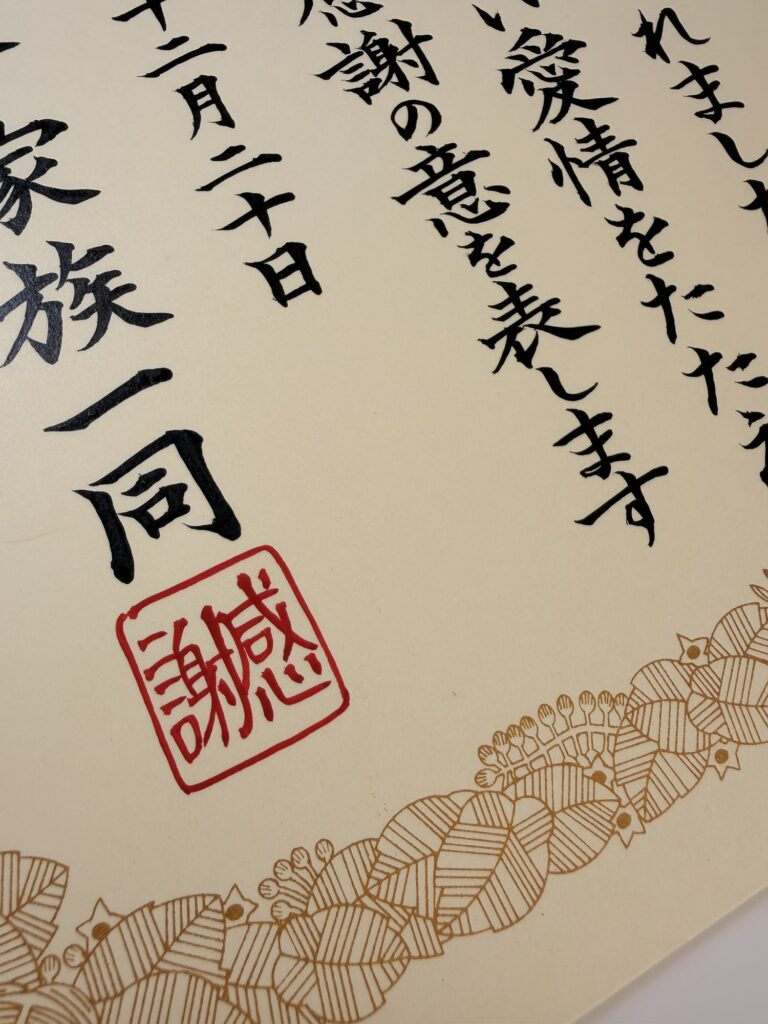 れました
い愛情をたたえ
感謝の意を表します
十二月二十日
家族一同
感謝